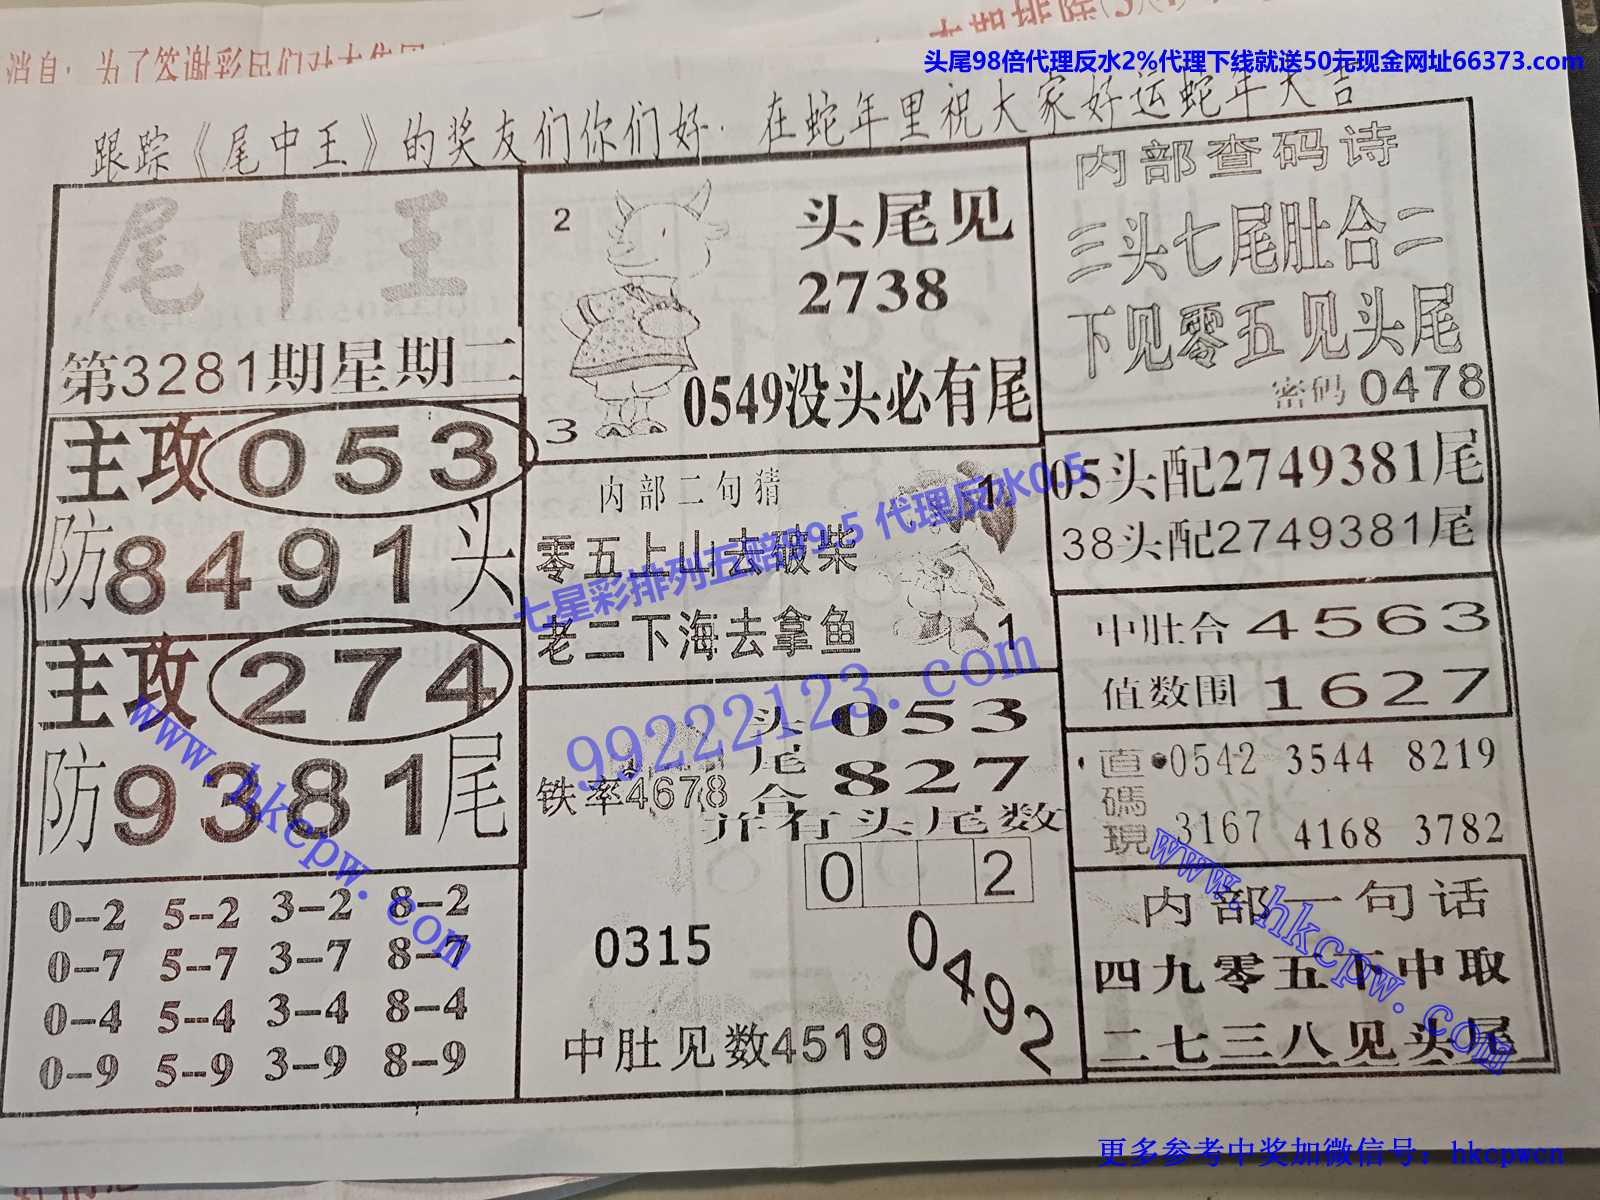 头尾98倍代理反水2%代理下线就送50元现金网址66373.com
跟踪《尾中王》的奖友们你们好．在蛇年里祝大家好运蛇年大吉
尾中王
第3281期星期二
主攻053
防8491头
主攻274
防9381尾
0--2 5--2 3--2 8--2
0--7 5--7 3--7 8--7
0--4 5--4 3--4 8--4
0--9 5--9 3--9 8--9
2
头尾见
2738
0549没头必有尾
3
内部二句猜
1
零五上山去破柴
老二下海去拿鱼
1
七星彩排列五赔99.5 代理反水0.5
99222123.com
头053
尾827
合
铁率4678
并有头尾数
0 2
0315
0492
中肚见数4519
内部查码诗
三头七尾肚合二
下见零五见头尾
密码0478
05头配2749381尾
38头配2749381尾
中肚合4563
值数围1627
直碼現
0542 3544 8219
3167 4168 3782
内部一句话
四九零五下中取
二七三八见头尾
www.hkcpw.com
www.hkcpw.com
更多参考中奖加微信号：hkcpwcn